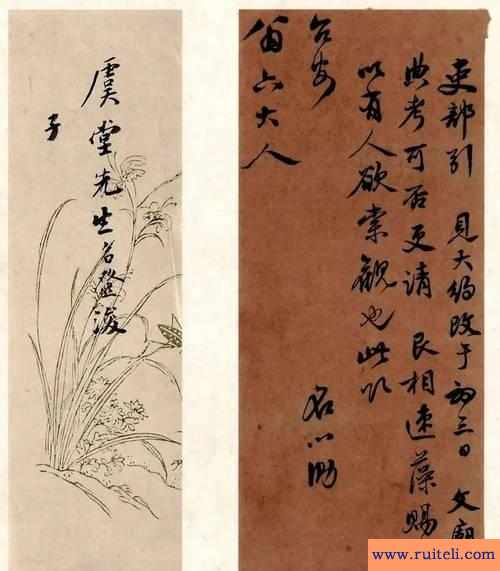 吏部引 見大約改于初三日 文廟
典考可否更請 艮相速藻賜
以有人欲索觀也此叩
名心叩
台安
六大人
虞堂先生名浚
子
www.ruiteli.com